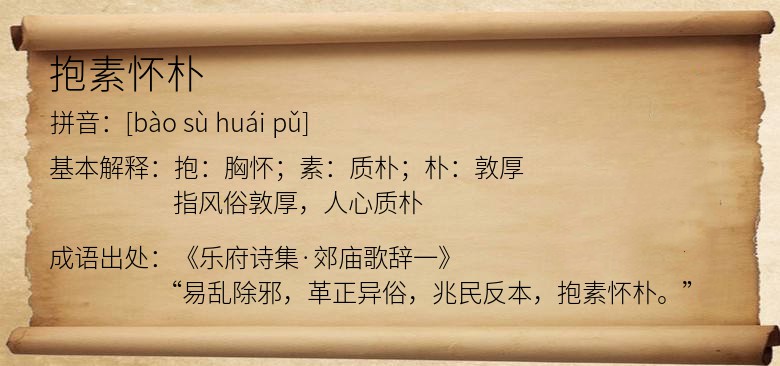 抱素怀朴
拼音：[bào sù huái pǔ]
基本解释：抱：胸怀；素：质朴；朴：敦厚
指风俗敦厚，人心质朴
成语出处：《乐府诗集·郊庙歌辞一》
“易乱除邪，革正异俗，兆民反本，抱素怀朴。”